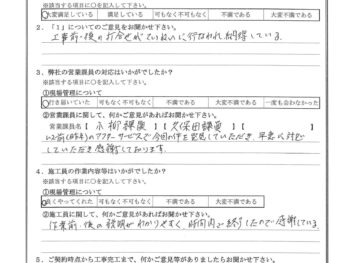 ※該当する項目に○を記入して下さい。
大変満足している 満足している 可もなく不可もなく 不満である 大変不満である
2．「1」についてのご意見をお聞かせ下さい。
工事前・後の打合せがていねいに行なわれ、納得している。
3．弊社の営業課員の対応はいかがでしたか？
※該当する項目に○を記入して下さい。
①現場管理について
行き届いていた 可もなく不可もなく 不満である 大変不満である 一度も会わなかった
②営業課員に関して、何かご意見があればお聞かせ下さい。
営業課員名【 小柳課長 】【 久保田課長 】【 】
以前(昨年)のアフターサービスで今回の件を発見していただき、早急に対応
していただき感謝しております。
4．施工員の作業内容等はいかがでしたか？
※該当する項目に○を記入して下さい。
①現場管理について
良くやってくれた 可もなく不可もなく 不満である 大変不満である
②施工員に関して、何かご意見があればお聞かせ下さい。
作業前・後の説明がわかりやすく、時間内で終了したので感謝している。
5．ご契約時点から工事完工まで、何かご意見等がありましたらお聞かせ下さい。